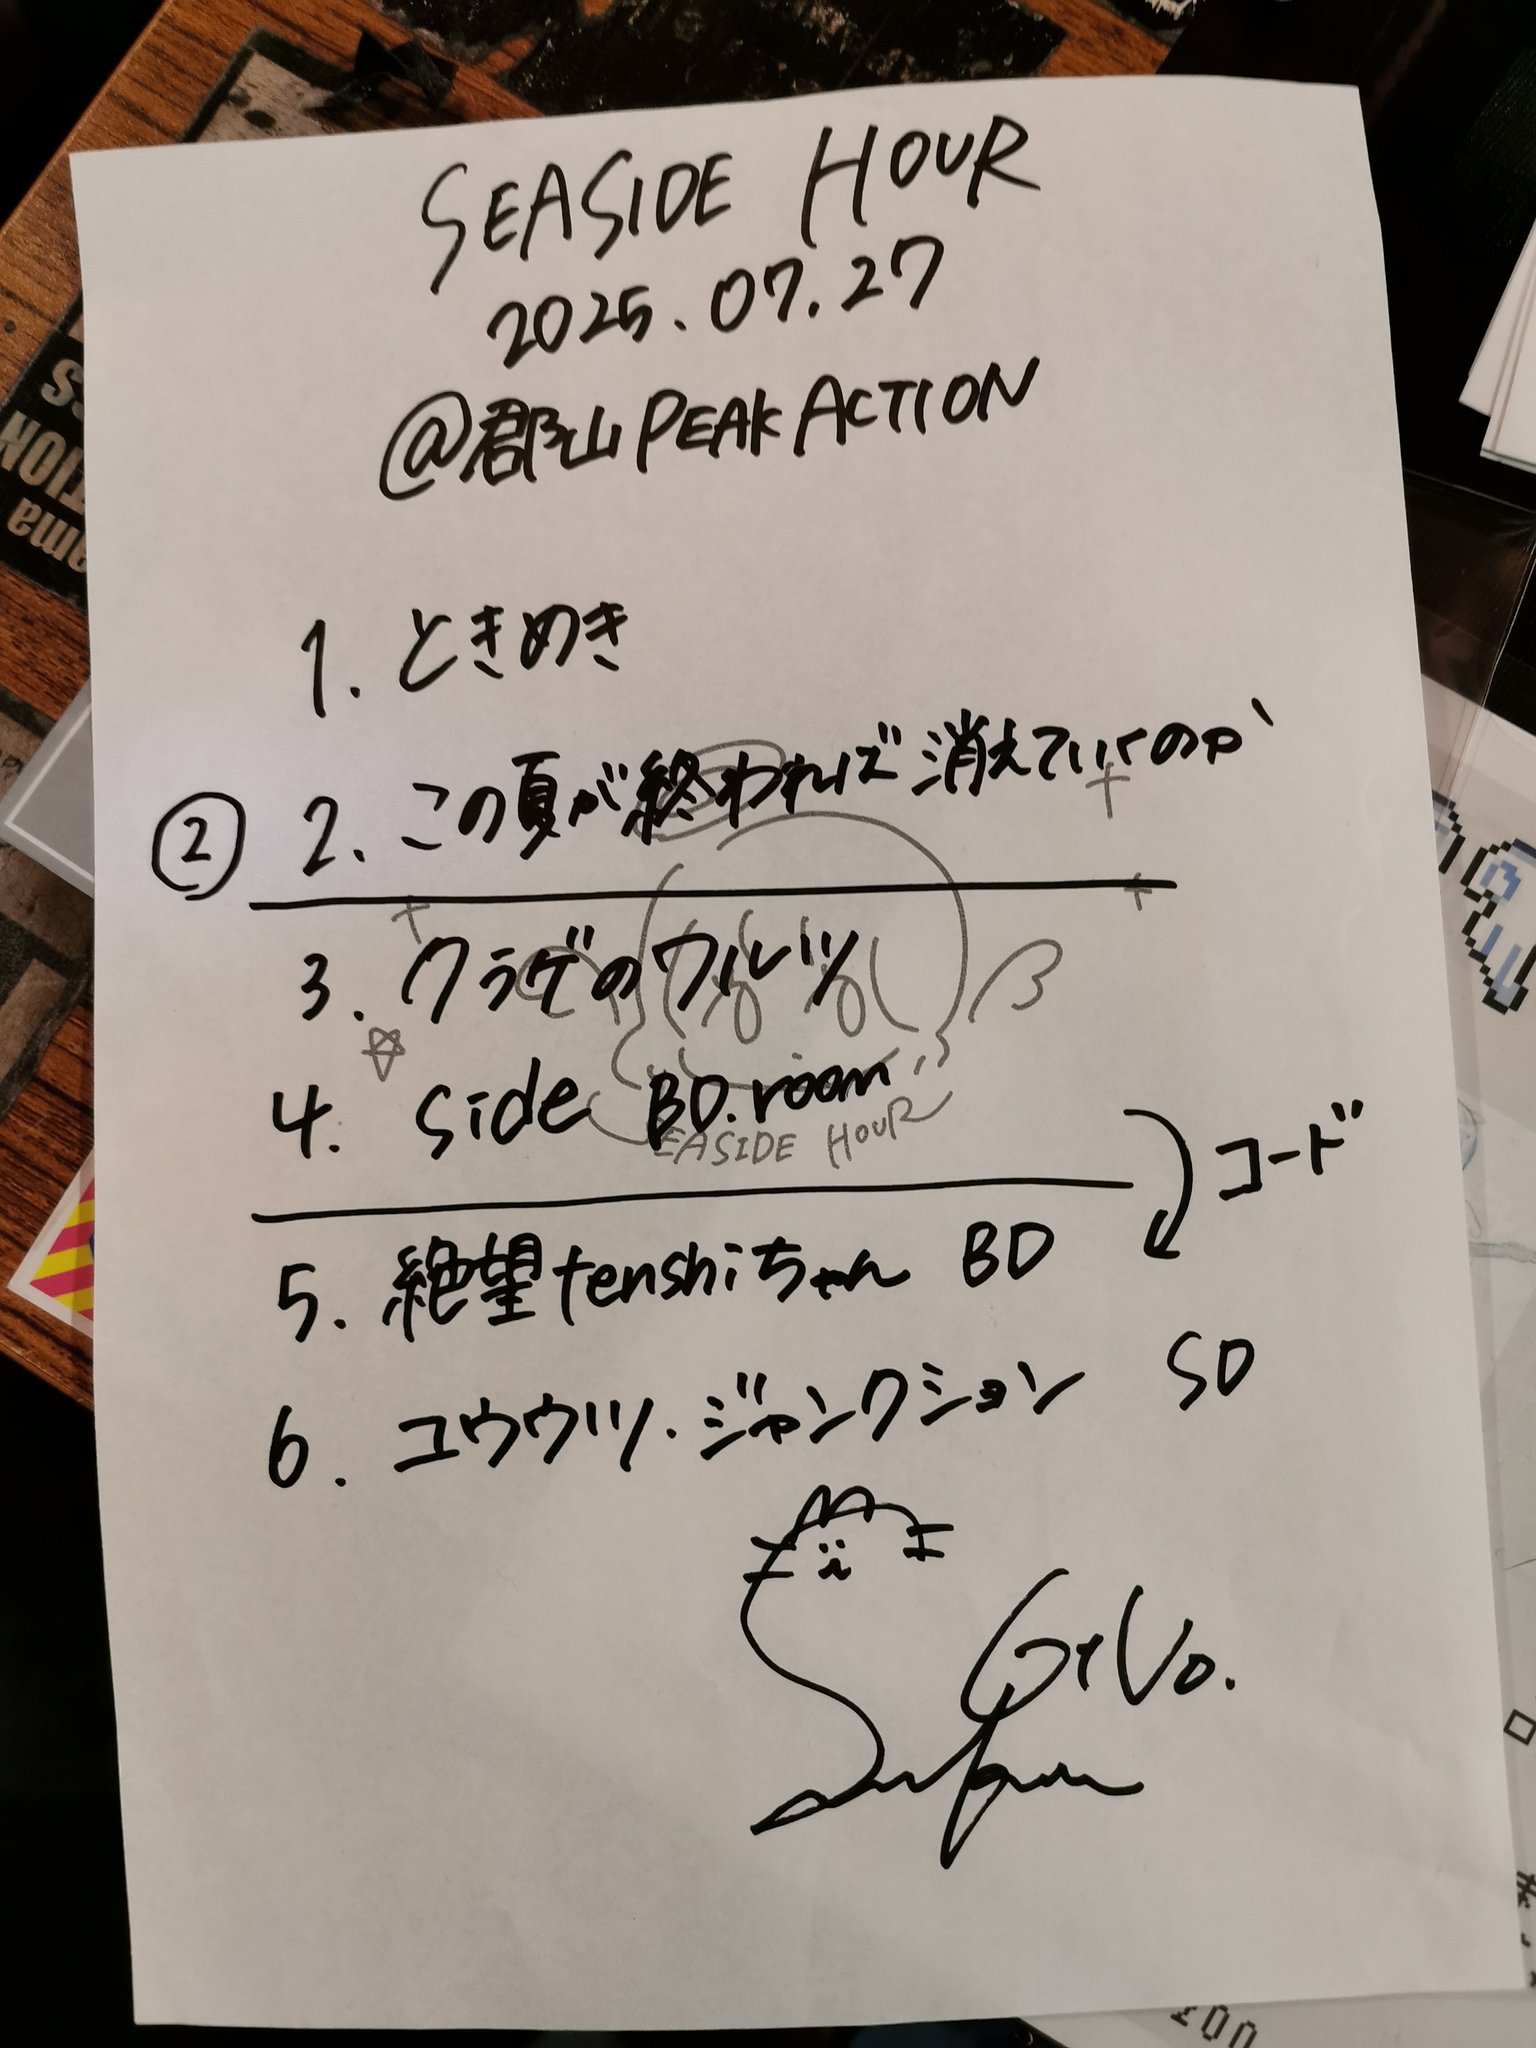 SEASIDE HOUR
2025.07.27
@郡山PEAK ACTION
1. ときめき
② 2. この夏が終われば消えていくのか
3. クラゲのワルツ
4. side BD.room
EASIDE HOUR
コード
5. 絶望tenshiちゃん BD
6. ユウウツ・ジャンクション SD
Gt Vo.
TION
ama
200